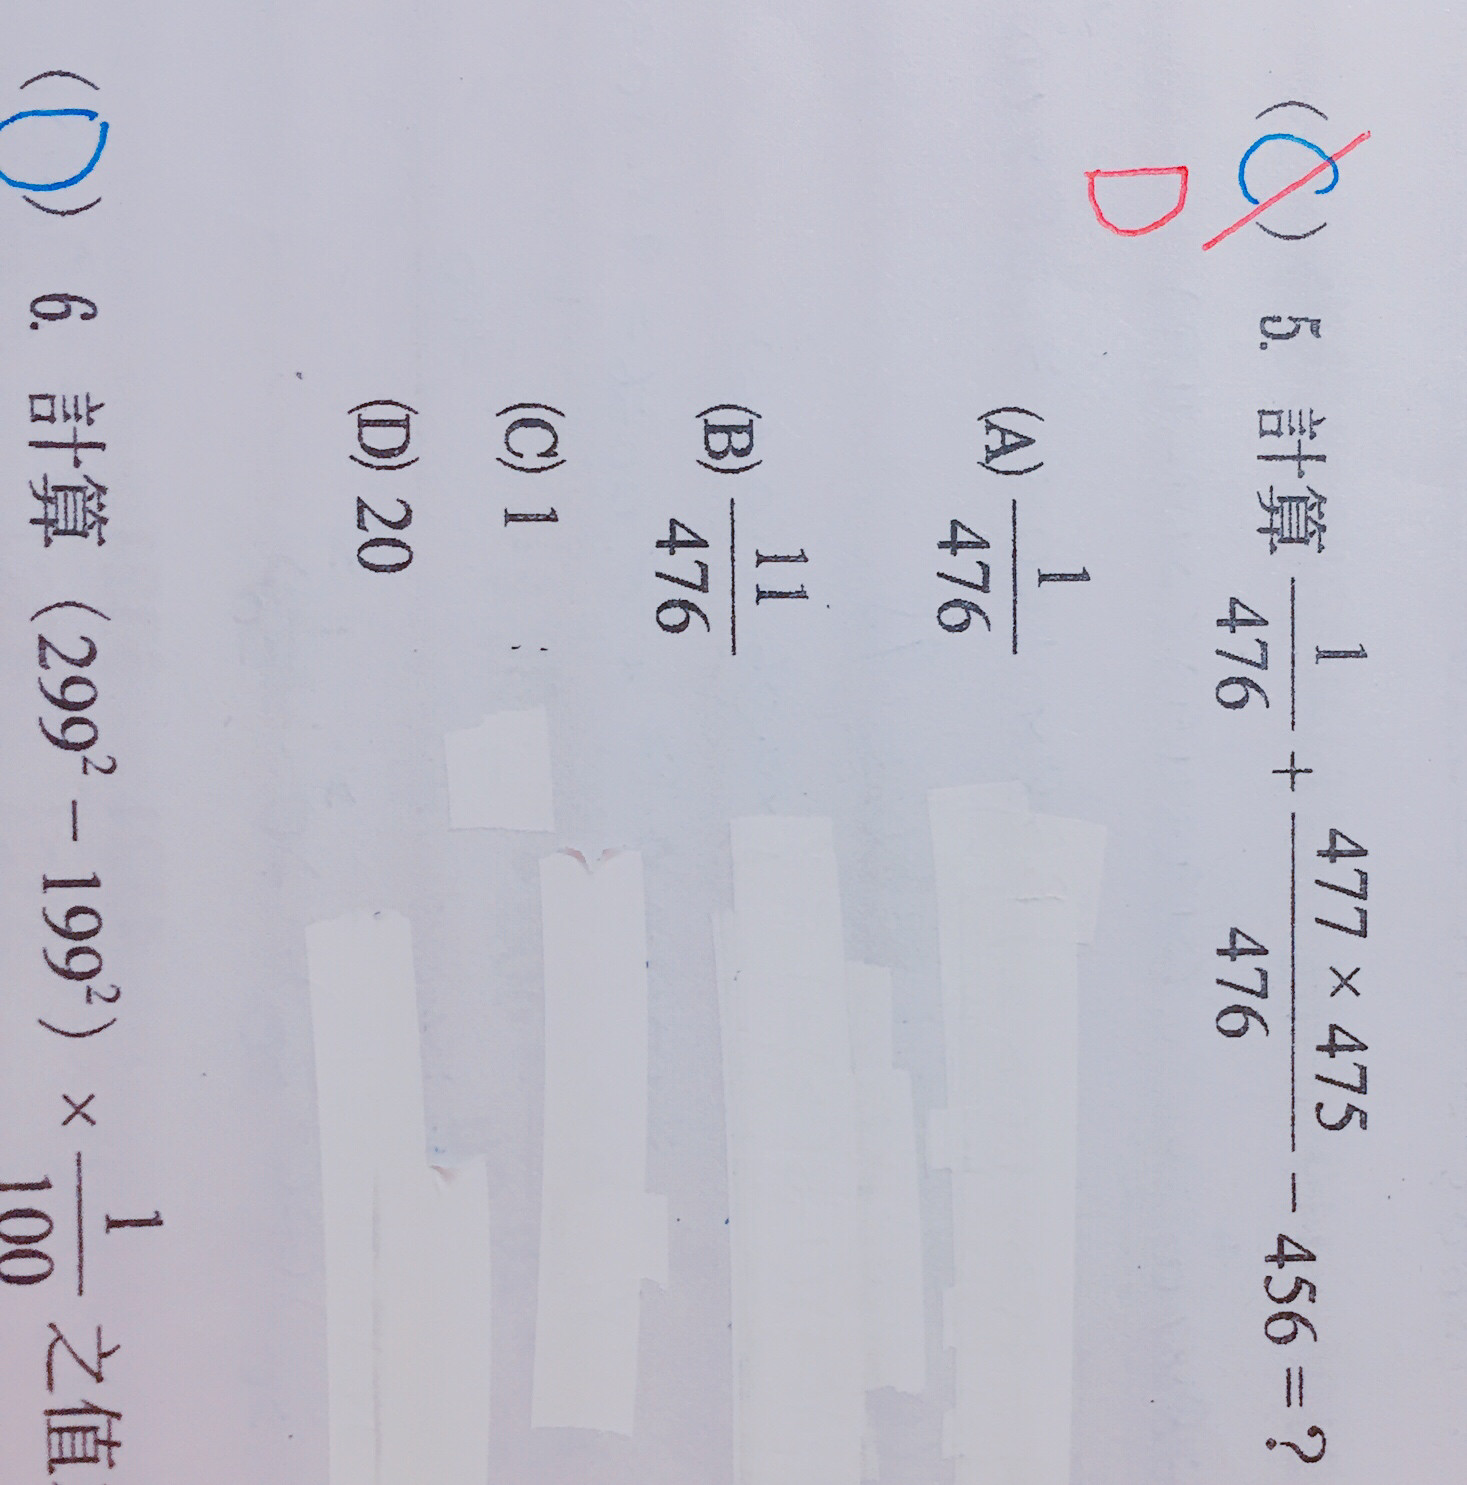 (C) 5. 計算 1/476 + 477×475/476 − 456 = ?
D
(A) 1/476
(B) 11/476
(C) 1
(D) 20
(D) 6. 計算 (299² − 199²) × 1/100 之值